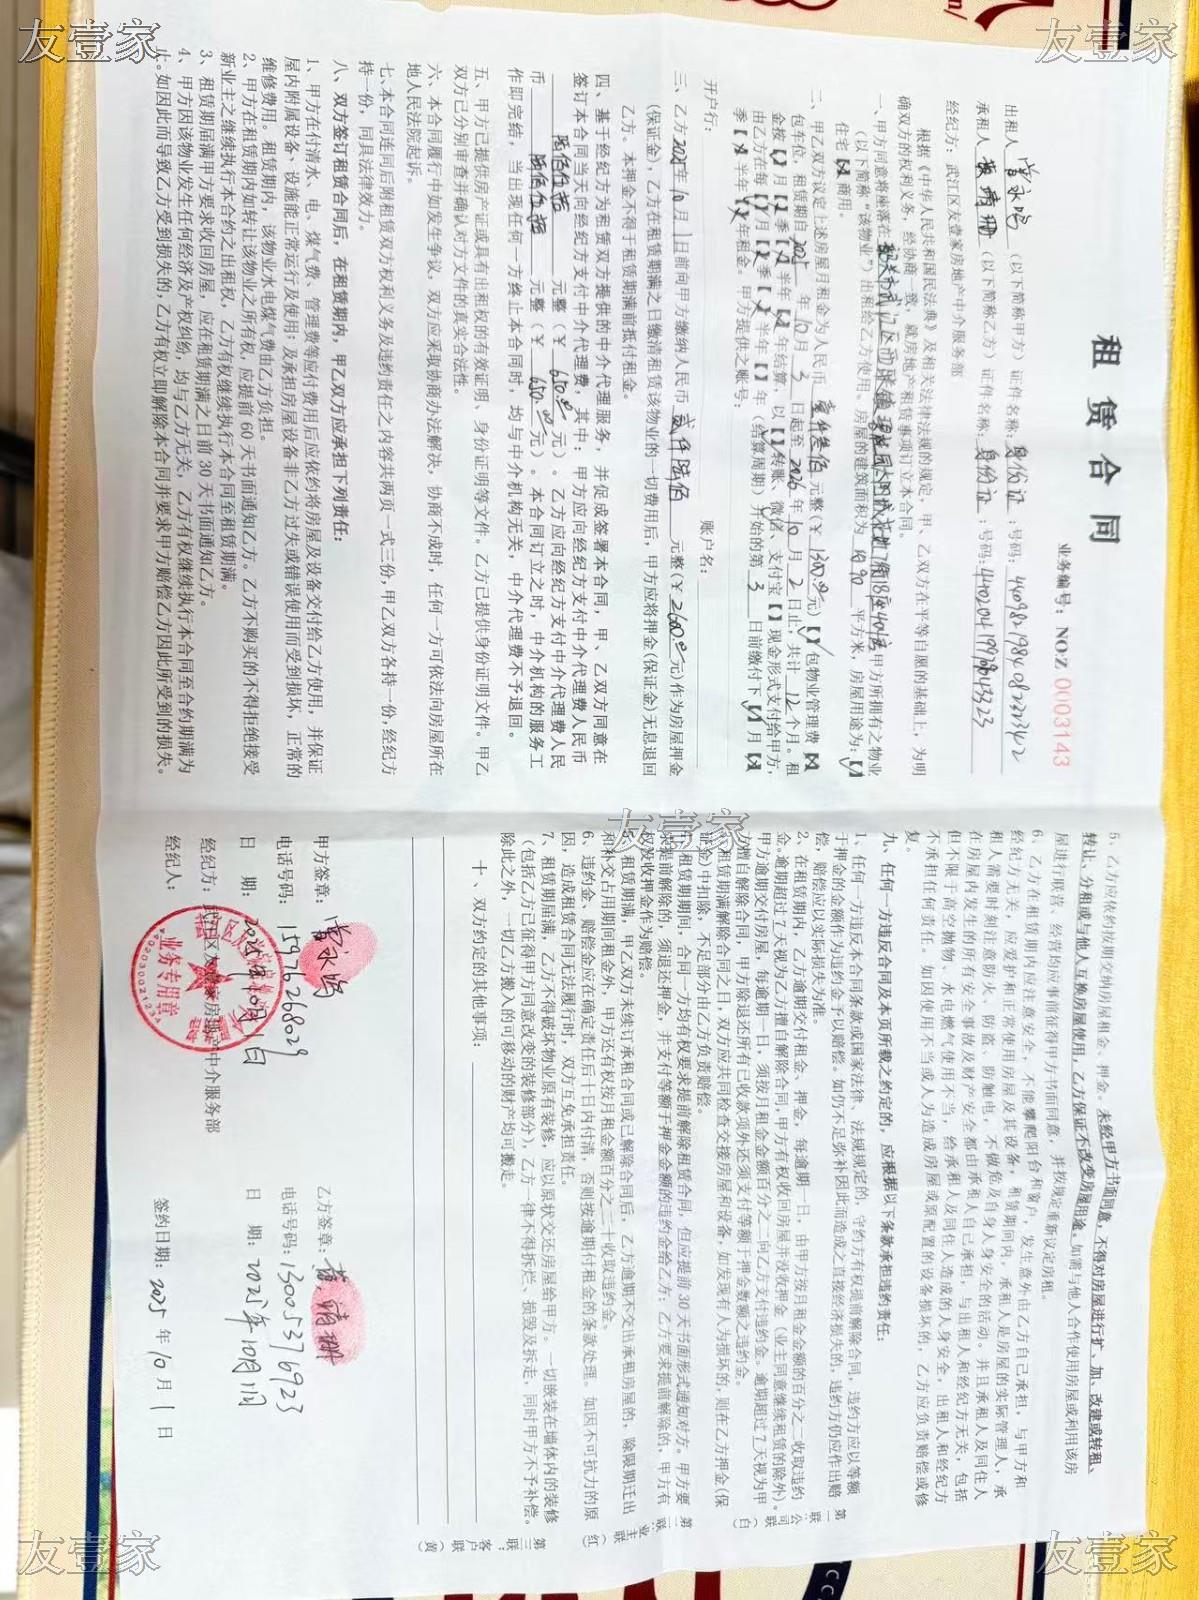 租赁合同
业务编号：NO:Z 0003143
出租人 （以下简称甲方）证件名称：身份证：号码：
承租人 （以下简称乙方）证件名称：身份证：号码：
经纪方：武江区友壹家房地产中介服务部
根据《中华人民共和国民法典》及相关法律法规的规定，甲、乙双方在平等自愿的基础上，为明
确双方的权利义务，经协商一致，就房地产租赁事项订立本合同。
一、甲方同意将座落在 甲方所拥有之物业
（以下简称“该物业”）出租给乙方使用。房屋的建筑面积为 平方米，房屋用途为：【√】
住宅【×】商用。
二、甲乙双方议定上述房屋月租金为人民币 壹仟叁佰 元整（￥1300.00元）【】包物业管理费【×】
包车位，租赁期自2025年10月3日起至2026年10月2日止，共计12个月。租
金按【】月【】季【】半年【】年结算，以【】转账、微信、支付宝【】现金形式支付给甲方，
由乙方在每【】月【】季【】半年【】年（结算周期）开始的第3日前缴付下【√】月【×】
季【×】半年【×】年租金。甲方提供之账号：
开户行： 账户名：
三、乙方2025年10月1日前向甲方缴纳人民币 贰仟陆佰 元整（￥2600.00元）作为房屋押金
（保证金），乙方在租赁期满之日缴清租赁该物业的一切费用后，甲方应将押金（保证金）无息退回
乙方。本押金不得于租赁期满前抵付租金。
四、基于经纪方为租赁双方提供的中介代理服务，并促成签署本合同，甲、乙双方同意在
签订本合同当天向经纪方支付中介代理费，其中：甲方应向经纪方支付中介代理费人民币
陆佰伍拾 元整（￥650.00元）。乙方应向经纪方支付中介代理费人民
币 陆佰伍拾 元整（￥650.00元）。本合同订立之时，中介机构的服务工
作即完结，当出现任何一方终止本合同时，均与中介机构无关，中介代理费不予退回。
五、甲方已提供房产证或具有出租权的有效证明、身份证明等文件。乙方已提供身份证明文件。甲乙
双方已分别审查并确认对方文件的真实合法性。
六、本合同履行中如发生争议，双方应采取协商办法解决，协商不成时，任何一方可依法向房屋所在
地人民法院起诉。
七、本合同连同后附租赁双方权利义务及违约责任之内容共两页一式三份，甲乙双方各持一份，经纪方
持一份，同具法律效力。
八、双方签订租赁合同后，在租赁期内，甲乙双方应承担下列责任：
1、甲方在付清水、电、煤气费、管理费等应付费用后应依约将房屋及设备交付给乙方使用，并保证
屋内附属设备、设施能正常运行及使用；及承担房屋设备非乙方过失或错误使用而受到损坏，正常的
维修费用。租赁期内，该物业水电煤气费由乙方负担。
2、甲方在租赁期内如转让该物业之所有权，应提前60天书面通知乙方。乙方不购买的不得拒绝接受
新业主之继续执行本合约之出租权，乙方有权继续执行本合同至租赁期满。
3、租赁期届满甲方要求收回房屋，应在租赁期满之日前30天书面通知乙方。
4、甲方因该物业发生任何经济及产权纠纷，均与乙方无关，乙方有权继续执行本合同至合约期满为
止。如因此而导致乙方受到损失的，乙方有权立即解除本合同并要求甲方赔偿乙方因此所受到的损失。
5、乙方应依约按期交纳房屋租金、押金。未经甲方书面同意，不得对房屋进行扩、加、改建或转租、
转让、分租或与他人互换房屋使用，乙方保证不改变房屋用途。如需与他人合作使用房屋或利用该房
屋进行联营、经营均应事前征得甲方书面同意，并按规定重新议定房租。
6、乙方在租赁期内应注意安全，不能攀爬阳台和窗户，发生意外由乙方自己承担，与甲方和
经纪方无关，应爱护和正常使用房屋及其设备，租赁期间内，承租人是房屋的实际管理人，承
租人需要时刻注意防火、防盗、防触电，不做危及自身人身安全的活动。并且承租人及同住人
在房屋内发生的所有安全事故及财产安全都由承租人自己承担，与出租人和经纪方无关，包括
但不限于高空抛物、水电燃气使用不当，给承租人及同住人造成的人身安全，出租人和经纪方
不承担任何责任。如因使用不当或人为造成房屋或原配置的设备损坏的，乙方应负责赔偿或修
复。
九、任何一方违反合同及本页所载之约定的，应根据以下条款承担违约责任：
1、任何一方违反本合同条款或国家法律、法规规定的，守约方有权提前解除合同，违约方应以等额
于押金的金额作为违约金予以赔偿。如仍不足弥补因此而造成之直接经济损失的，违约方仍应作出赔
偿，赔偿应以实际损失为准。
2、在租赁期内，乙方逾期交付租金、押金，每逾期一日，由甲方按月租金金额的百分之二收取违约
金，逾期超过7天视为乙方擅自解除合同，甲方有权收回房屋并没收押金（业主同意继续租赁的除外）。
甲方逾期交付房屋，每逾期一日，须按月租金金额百分之二向乙方支付违约金。逾期超过7天视为甲
方擅自解除合同，甲方除退还所有已收款项外还须支付等额于押金数额之违约金。
租赁期满解除合同之日，双方应共同检查交接房屋和设备，如发现有人为损坏的，则在乙方押金（保
证金）中扣除，不足部分由乙方负责赔偿。
租赁期期间，合同一方均有权要求提前解除租赁合同，但应提前30天书面形式通知对方。甲方要
求提前解除的，须退还押金，并支付等额于押金金额的违约金给乙方；乙方要求提前解除的，甲方有
权没收押金作为赔偿。
5、租赁期满，甲乙双方未续订承租合同或已解除合同后，乙方逾期不交出承租房屋的，除限期迁出
和补交占用期租金外，甲方还有权按月租金额百分之二十收取违约金。
6、违约金，赔偿金应在确定责任后十日内付清，否则按逾期付租金的条款处理。如因不可抗力的原
因，造成租赁合同无法履行时，双方互免承担责任。
7、租赁期届满，乙方不得破坏物业原有装修，应以原状交还房屋给甲方。一切嵌装在墙体内的装修
（包括乙方已征得甲方同意改变的装修部分），乙方一律不得拆拦、损毁及拆走，同时甲方不予补偿。
除此之外，一切乙方搬入的可移动的财产均可搬走。
十、双方约定的其他事项：
甲方签章： 乙方签章：
电话号码：15976268029 电话号码：13005376923
日 期：2025年10月1日 日 期：2025年10月1日
经纪方：武江区友壹家房地产中介服务部
经纪人： 签约日期：2025年10月1日
业务专用章
友壹家
友壹家
友壹家
友壹家
友壹家